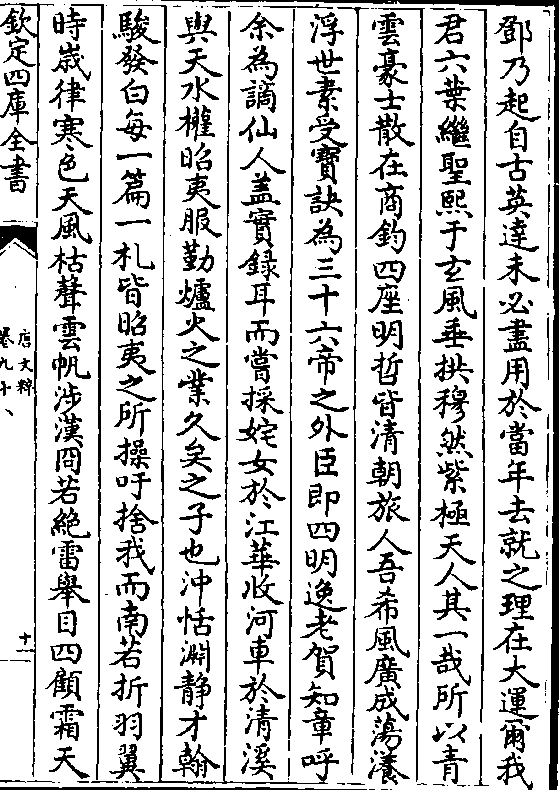 鄧乃起自古英達未必盡用於當年去就之理在大運爾我
君六葉繼聖熙于玄風垂拱穆然紫極天人其一哉所以青
雲豪士散在商釣四座明哲皆清朝旅人吾希風廣成蕩瀁
浮世素受寶訣為三十六帝之外臣即四明逸老賀知章呼
余為謫仙人盖實録耳而嘗採姹女於江華收河車於清溪
與天水權昭夷服勤爐火之業久矣之子也沖恬淵静才翰
駿發白每一篇一札皆昭夷之所操吁捨我而南若折羽翼
時嵗律寒色天風枯聲雲帆涉漢冏若絶雷舉目四顧霜天
欽定四庫全書
唐文粹
卷九十八
十一